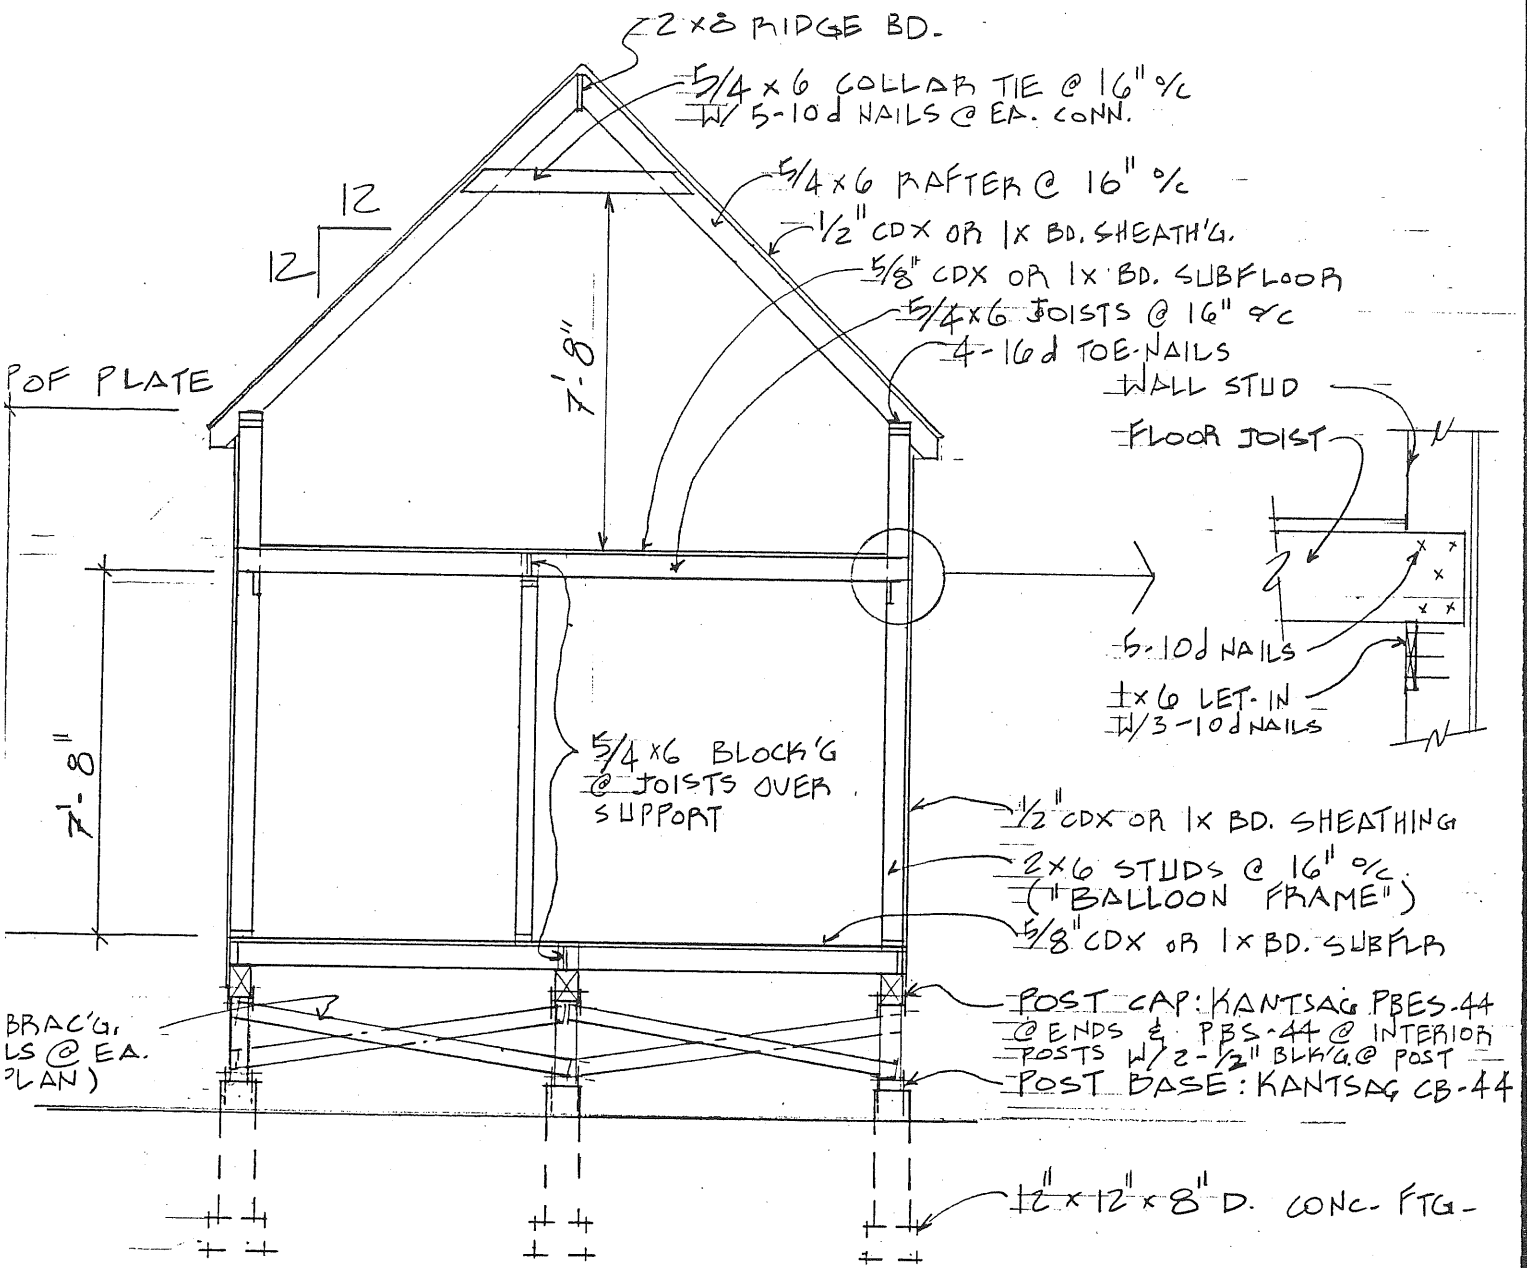 2x8 RIDGE BD.
5/4 x 6 COLLAR TIE @ 16" o/c
W/ 5-10d NAILS @ EA. CONN.
5/4 x 6 RAFTER @ 16" o/c
1/2" CDX OR 1x BD. SHEATH'G.
5/8" CDX OR 1x BD. SUBFLOOR
5/4x6 JOISTS @ 16" o/c
4-16d TOE-NAILS
12
12
7'-8"
P OF PLATE
WALL STUD
FLOOR JOIST
5-10d NAILS
1x6 LET-IN
W/3-10d NAILS
7'-8"
5/4 x6 BLOCK'G
@ JOISTS OVER
SUPPORT
1/2" CDX OR 1x BD. SHEATHING
2x6 STUDS @ 16" o/c.
("BALLOON FRAME")
5/8" CDX OR 1x BD. SUBFLR
POST CAP: KANTSAG PBES-44
@ ENDS & PBS-44 @ INTERIOR
POSTS W/ 2-1/2" BLK'G. @ POST
POST BASE: KANTSAG CB-44
BRAC'G.
LS @ EA.
PLAN)
12" x 12" x 8" D. CONC. FTG.